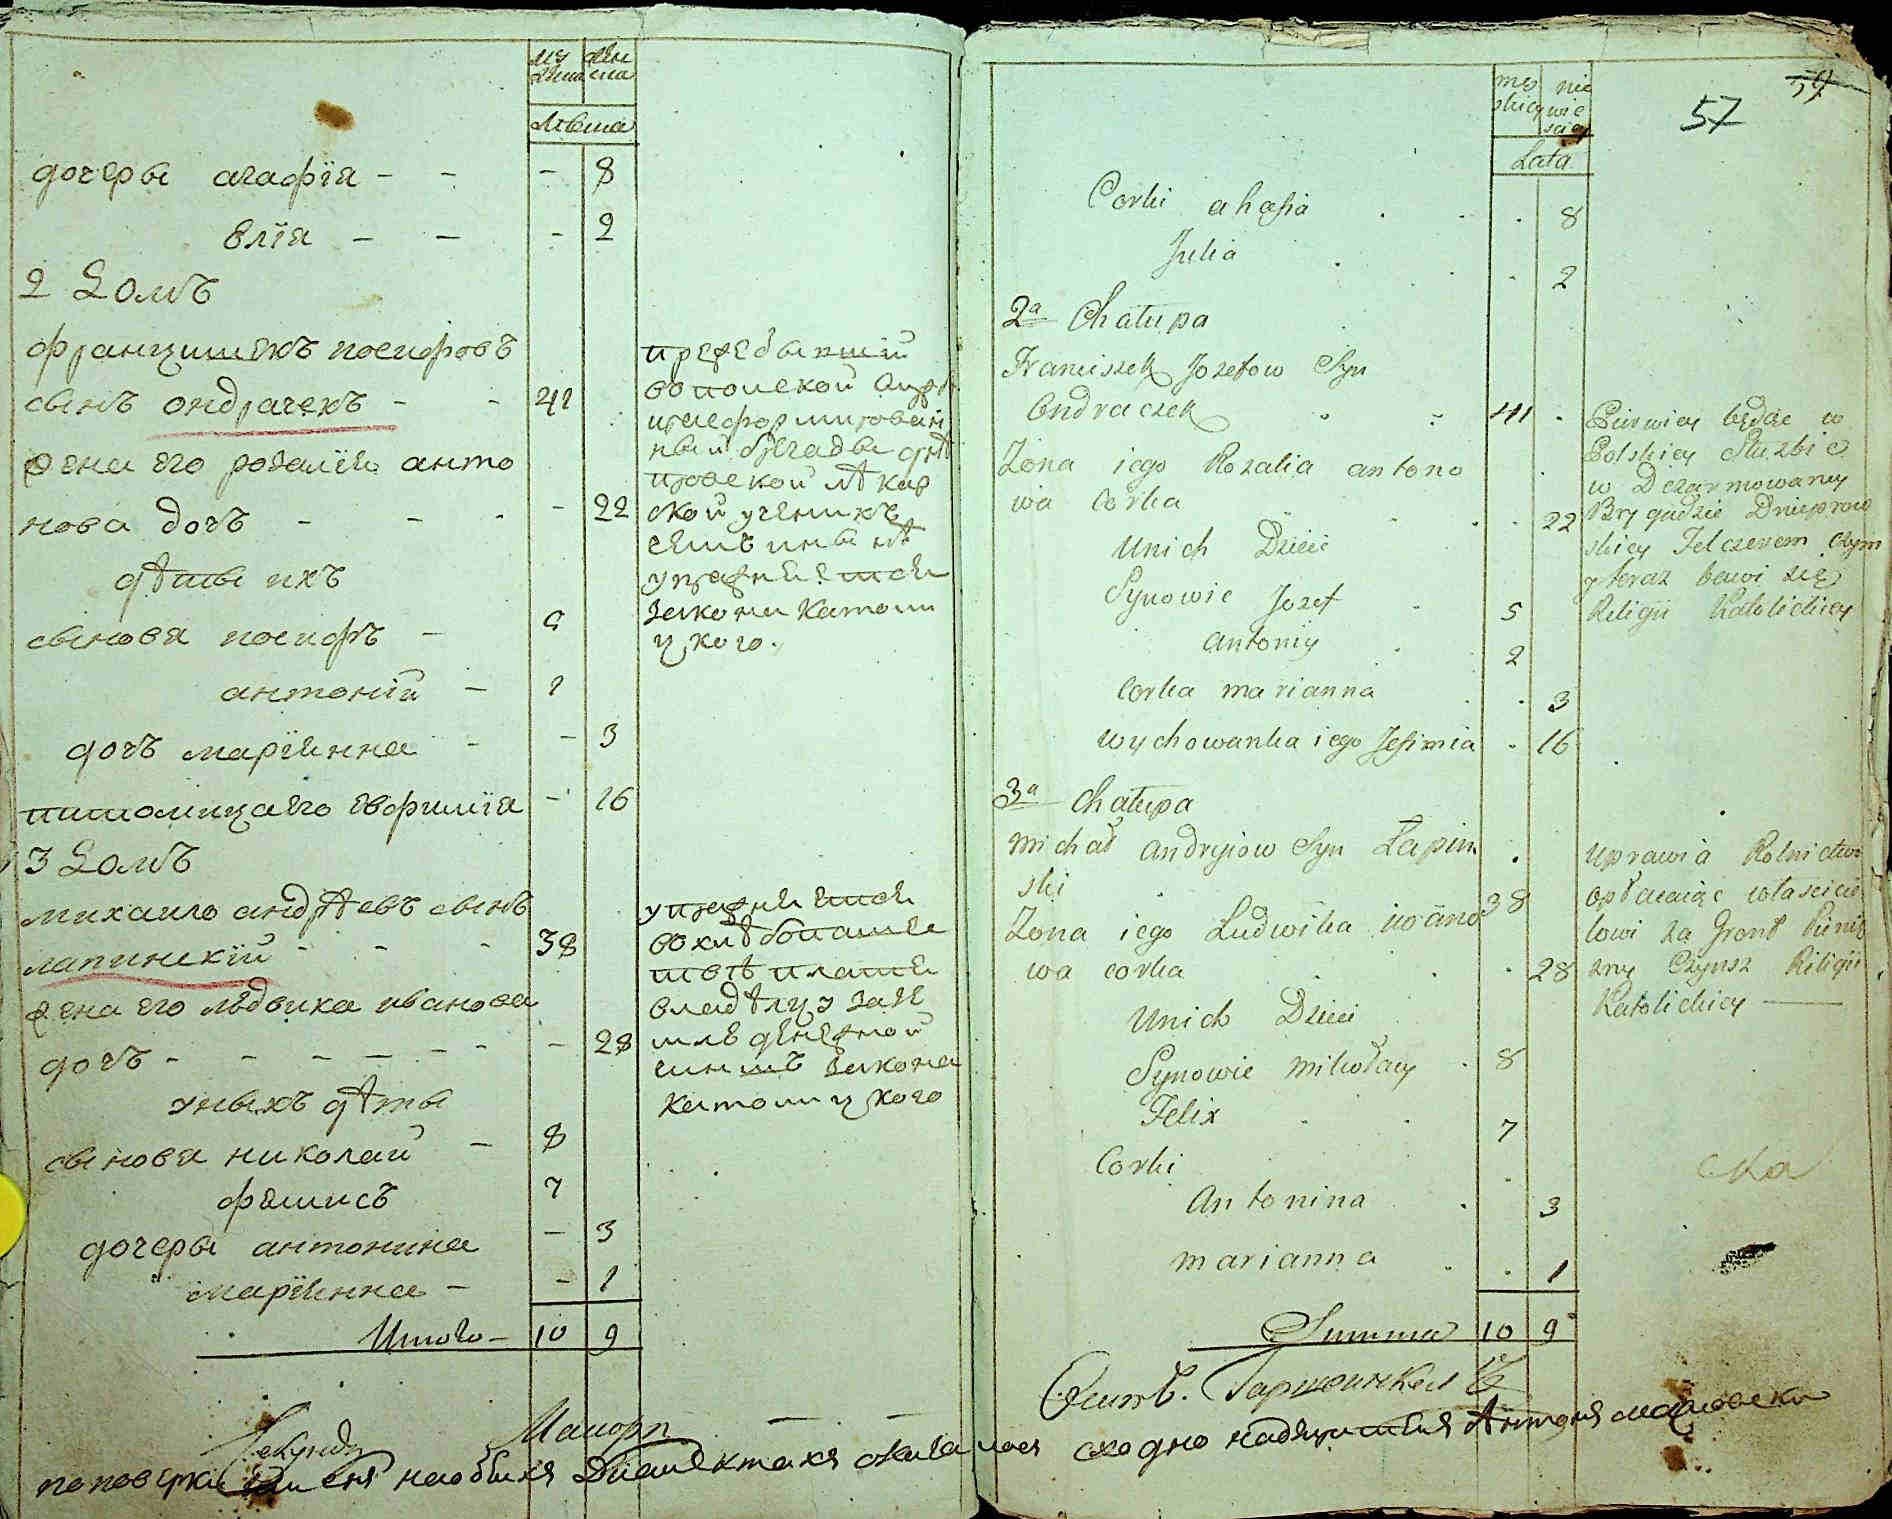 мужска женска
Лѣта
дочеры агафїя - - - 8
влїя - - - 2
2 Домъ
францишекъ иосифовъ
сынъ ондрачекъ - - 41
жена его розалїя анто
нова дочъ - - - - 22
дѣты ихъ
сыновя иосифъ - 5
антонїй - 2
дочъ марїянна - - 3
питомица его евфимїя - 16
3 Домъ
михаило андрѣевъ сынъ
лапинскїй - - - 38
жена его людвика иванова
дочъ - - - - - - - 28
у ныхъ дѣты
сыновя николай - 8
феликсъ 7
дочеры антонина - 3
марїянна - - 1
Итого - 10 9
прежде бывший
во полской служ
бригады днѣ
провской лѣкар
ской ученикъ
закона католи
цкого.
упражняется
во хлѣбопаше
ствѣ платя
владѣлцу за зе
млю денежной
чиншъ закона
католицкого
Секунд Маиоръ
męskiey niewiesciey
Lata
57
Corki ahafia . . . 8
Julia . . . 2
2a Chałupa
Franciszek Jozefow Syn
Ondraczek . . 41 .
Zona iego Rozalia antono
wa Corka . . . 22
Unich Dzieci
Synowie Jozef . 5
antoniy . 2
Corka marianna . . 3
wychowanka iego Jefimia . 16
3a Chatupa
michał andryiow Syn Łapin
ski . 38
Zona iego Ludwika iwano
wa corka . . . 28
Unich Dzieci
Synowie mikołay . 8
Felix . . 7
Corki
antonina . . 3
marianna . . 1
Summa 10 9
Pierwiey będąc w
Polskiey Służbie
w
Brygadzie Dnieprow
skiey Felczerem czym
y teraz bawi się
Religii Katolickiey
Uprawia Rolnictwo
opłacaiąc właścicie
lowi za Grunt Pienię
zny Czynsz Religii
Katolickiey
ска
по поверки на обоихъ диалектахъ оказалося сходно